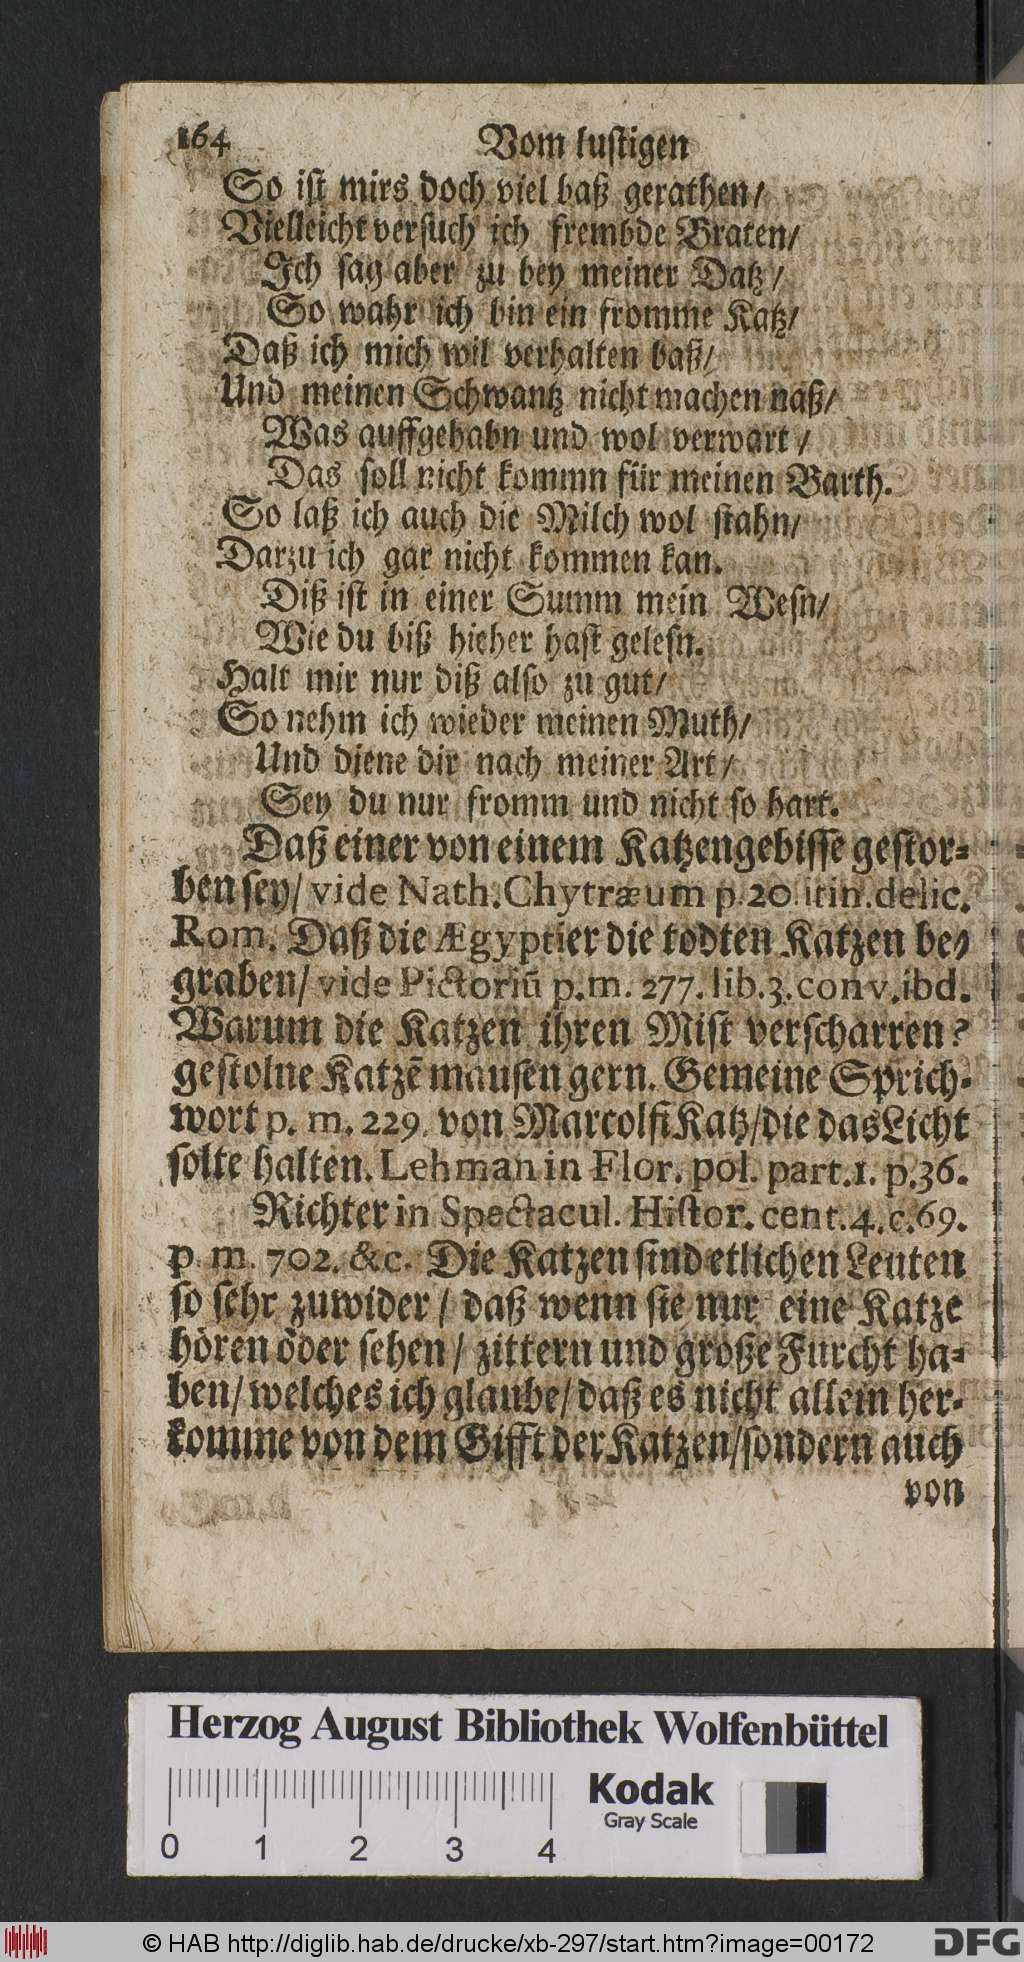 164 Vom lustigen
So ist mirs doch viel baß gerathen/
Vielleicht versuch ich frembde Braten/
Ich sag aber zu bey meiner Datz/
So wahr ich bin ein fromme Katz/
Daß ich mich wil verhalten baß/
Und meinen Schwantz nicht machen naß/
Was auffgehabn und wol verwart/
Das soll nicht kommn für meinen Barth.
So laß ich auch die Milch wol stahn/
Darzu ich gar nicht kommen kan.
Diß ist in einer Summ mein Wesn/
Wie du biß hieher hast gelesn.
Halt mir nur diß also zu gut/
So nehm ich wieder meinen Muth/
Und diene dir nach meiner Art/
Sey du nur fromm und nicht so hart.
Daß einer von einem Katzengebisse gestor-
ben sey/ vide Nath. Chytræum p. 20. itin. delic.
Rom. Daß die Ægyptier die todten Katzen be-
graben/ vide Pictoriū p. m. 277. lib. 3. conv. ibd.
Warum die Katzen ihren Mist verscharren?
gestolne Katzē mausen gern. Gemeine Sprich-
wort p. m. 229. von Marcolfi Katz/ die das Licht
solte halten. Lehman in Flor. pol. part. 1. p. 36.
Richter in Spectacul. Histor. cent. 4. c. 69.
p. m. 702. &c. Die Katzen sind etlichen Leuten
so sehr zuwider/ daß wenn sie nur eine Katze
hören oder sehen/ zittern und große Furcht ha-
ben/ welches ich glaube/ daß es nicht allein her-
komme von dem Gifft der Katzen/ sondern auch
von
Herzog August Bibliothek Wolfenbüttel
Kodak
Gray Scale
0 1 2 3 4
© HAB http://diglib.hab.de/drucke/xb-297/start.htm?image=00172
DFG